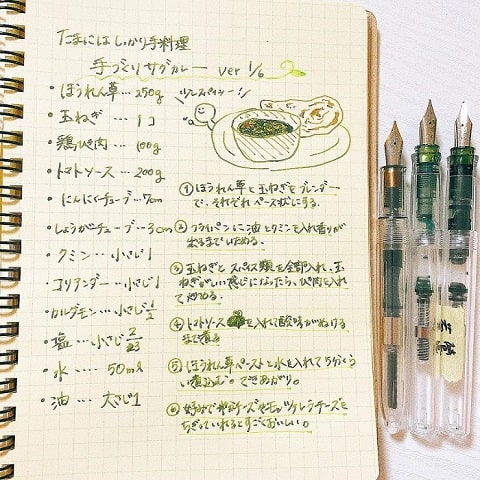 たまにはしっかり手料理
手づくりサグカレー ver 1/6
・ほうれん草…250g
・玉ねぎ…1コ
・鶏ひき肉…100g
・トマトソース…200g
・にんにくチューブ…7cm
・しょうがチューブ…3cm
・クミン…小さじ1
・コリアンダー…小さじ1
・カルダモン…小さじ1/2
・塩…小さじ2/3
・水…50ml
・油…大さじ1
①ほうれん草と玉ねぎをブレンダー
で、それぞれペースト状にする。
②フライパンに油とクミンを入れ香りが
出るまでいためる。
③玉ねぎとスパイス類を全部入れ、玉
ねぎがいい感じになったら、ひき肉を入れ
て炒める。
④トマトソースを入れて酸味がぬける
まで煮る
⑤ほうれん草ペーストと水を入れて5分くら
い煮込む。できあがり。
⑥好みで粉チーズやモッツァレラチーズを
ちぎっていれるとすごくおいしい。